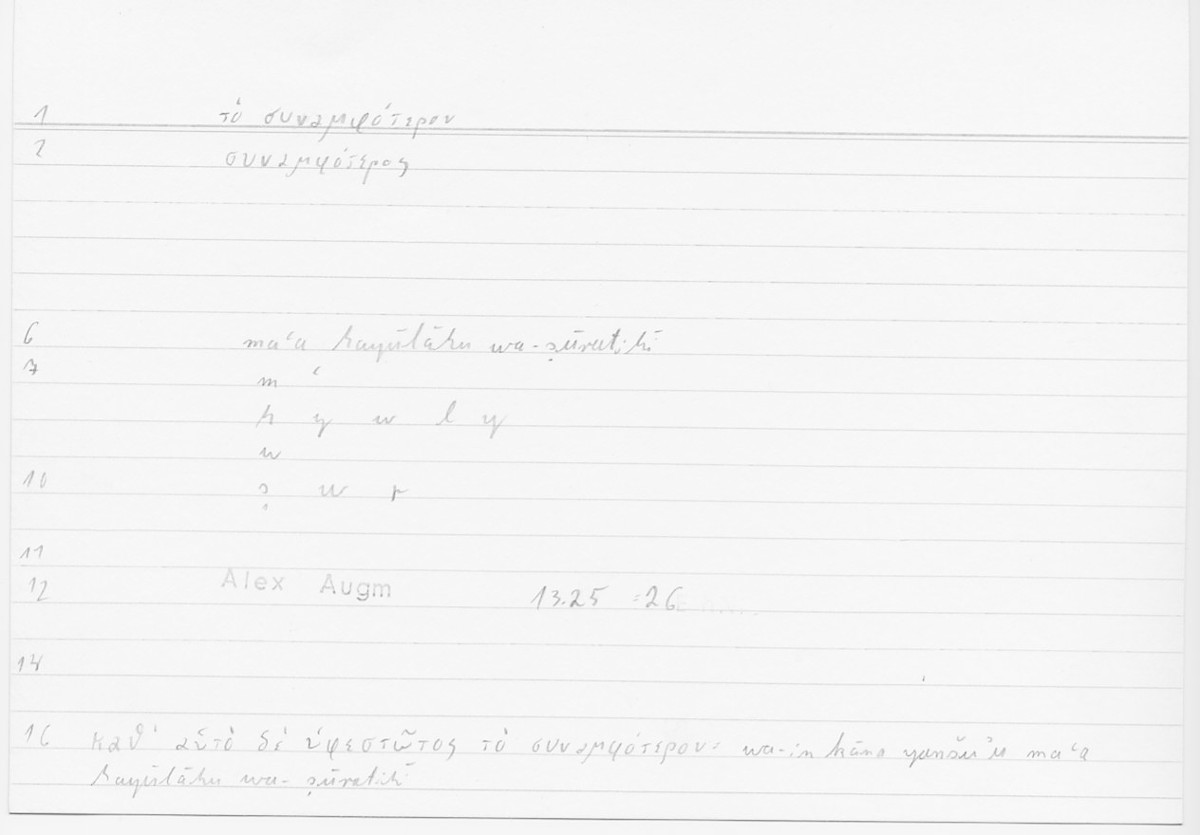 1 τὸ συναμφότερον
2 συναμφότερος
6 maʿa hayūlāhu wa-ṣūratihī
7 m ʿ
h y w l y
w
10 ṣ w r
11
12 Alex Augm 13.25 =26
14
16 καθ' αὑτὸ δὲ ὑφεστῶτος τὸ συναμφότερον: wa-in kāna yanšuʾu maʿa
hayūlāhu wa-ṣūratihī